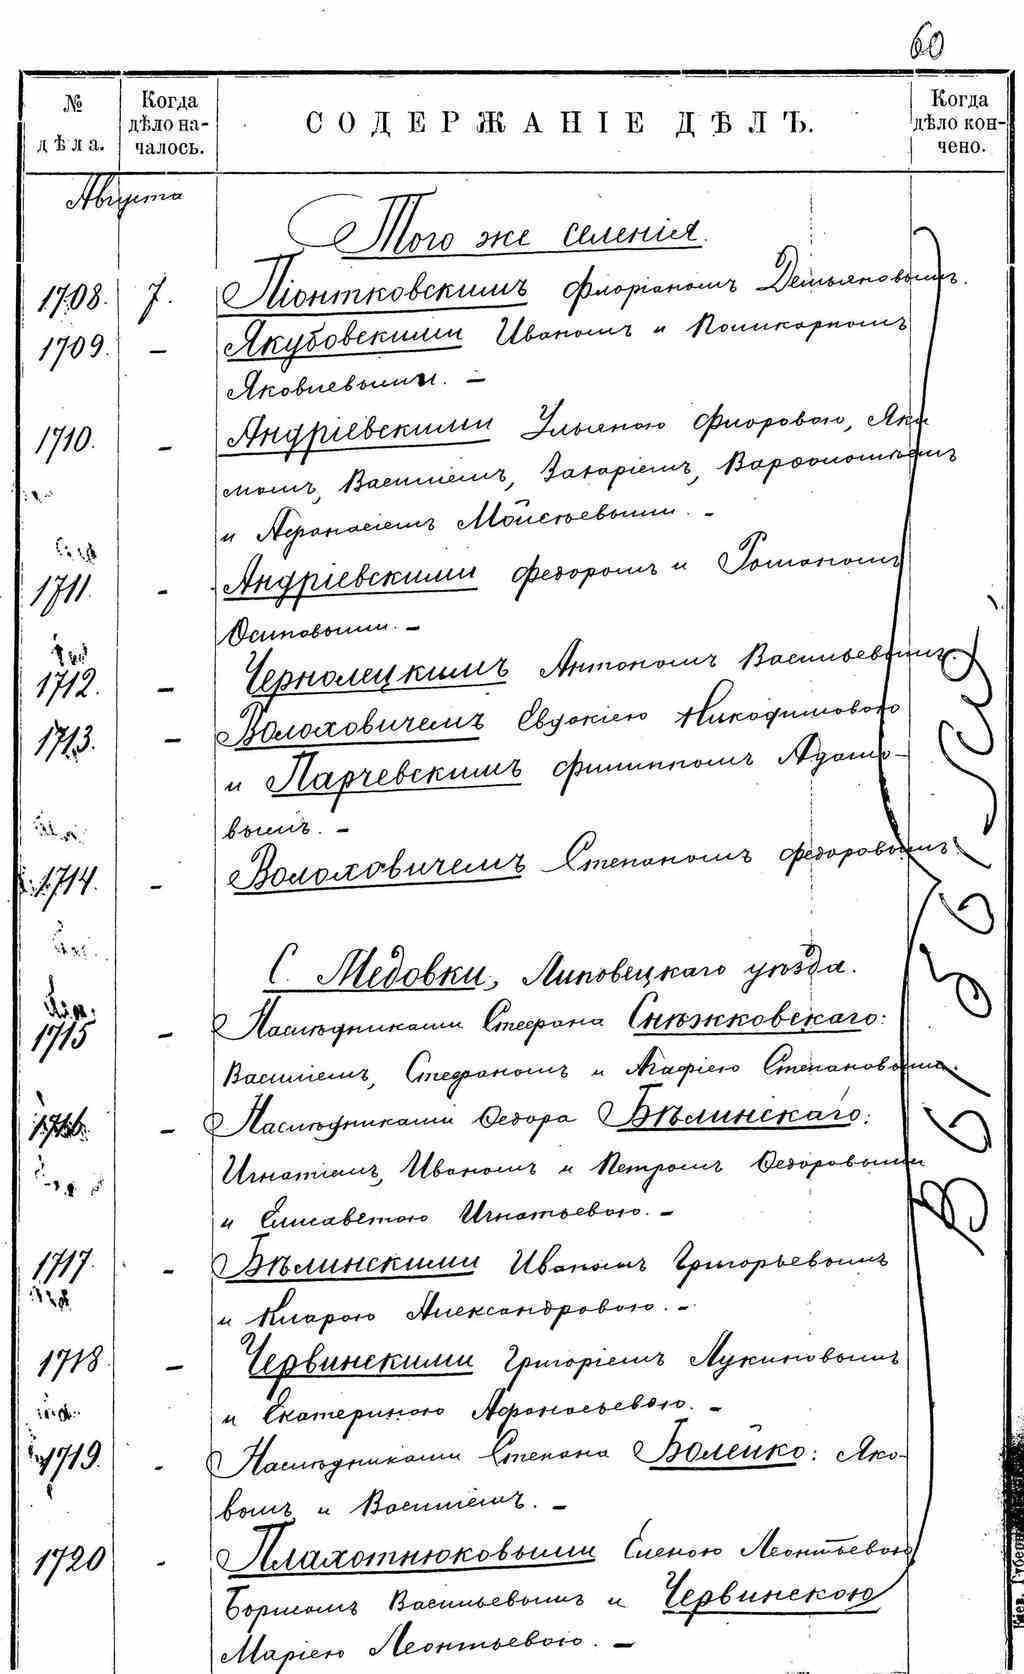 60
№ дѣла. Когда дѣло началось. СОДЕРЖАНІЕ ДѢЛЪ. Когда дѣло кончено.
Августа
Того же селенія.
1708. 7. Піонтковскимъ Флоріаномъ Демьяновымъ.
1709. – Якубовскими Иваномъ и Поликарпомъ
Яковлевыми. –
1710. – Андріевскими Ульяною Флоровою, Яки
момъ, Василіемъ, Захаріемъ, Варѳоломѣемъ
и Афанасіемъ Мойсѣевыми. –
1711. – Андріевскими Федоромъ и Романомъ
Осиповыми. –
1712. – Чернолецкимъ Антономъ Васильевымъ.
1713. – Волоховичемъ Евдокіею Никофимовою
и Парчевскимъ Филиппомъ Адамо-
вымъ. –
1714. – Волоховичемъ Степаномъ Федоровымъ.
С. Медовки, Липовецкаго уѣзда.
1715 – Наслѣдниками Стефана Снѣжковскаго:
Василіемъ, Стефаномъ и Агафіею Степановыми.
1716. – Наслѣдниками Ѳедора Бѣлинскаго:
Игнатіемъ, Иваномъ и Петромъ Ѳедоровыми
и Елисаветою Игнатьевою. –
1717. – Бѣлинскими Иваномъ Григорьевымъ
и Кларою Александровою. –
1718. – Червинскими Григоріемъ Лукиновымъ
и Екатериною Афанасьевою. –
1719. – Наслѣдниками Степана Болейко: Яко-
вомъ и Василіемъ. –
1720 – Плахотнюковыми Еленою Леонтьевою
Борисомъ Васильевымъ и Червинскою
Маріею Леонтьевою. –